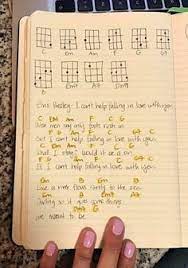 C Em Am F G
B E A7
Elvis Presley: I can't help falling in love with you
C Em Am F C G
Wise men say only fools rush in
F G Am F C G7 C
but I can't help falling in love with you
C Em Am F C G
Shall I stay? would it be a sin
F G Am F C G7 C
If I can't help falling in love with you
Em B Em B
Like a river flows surely to the sea
Em B Em B
Darling so it goes some things
G
are meant to be